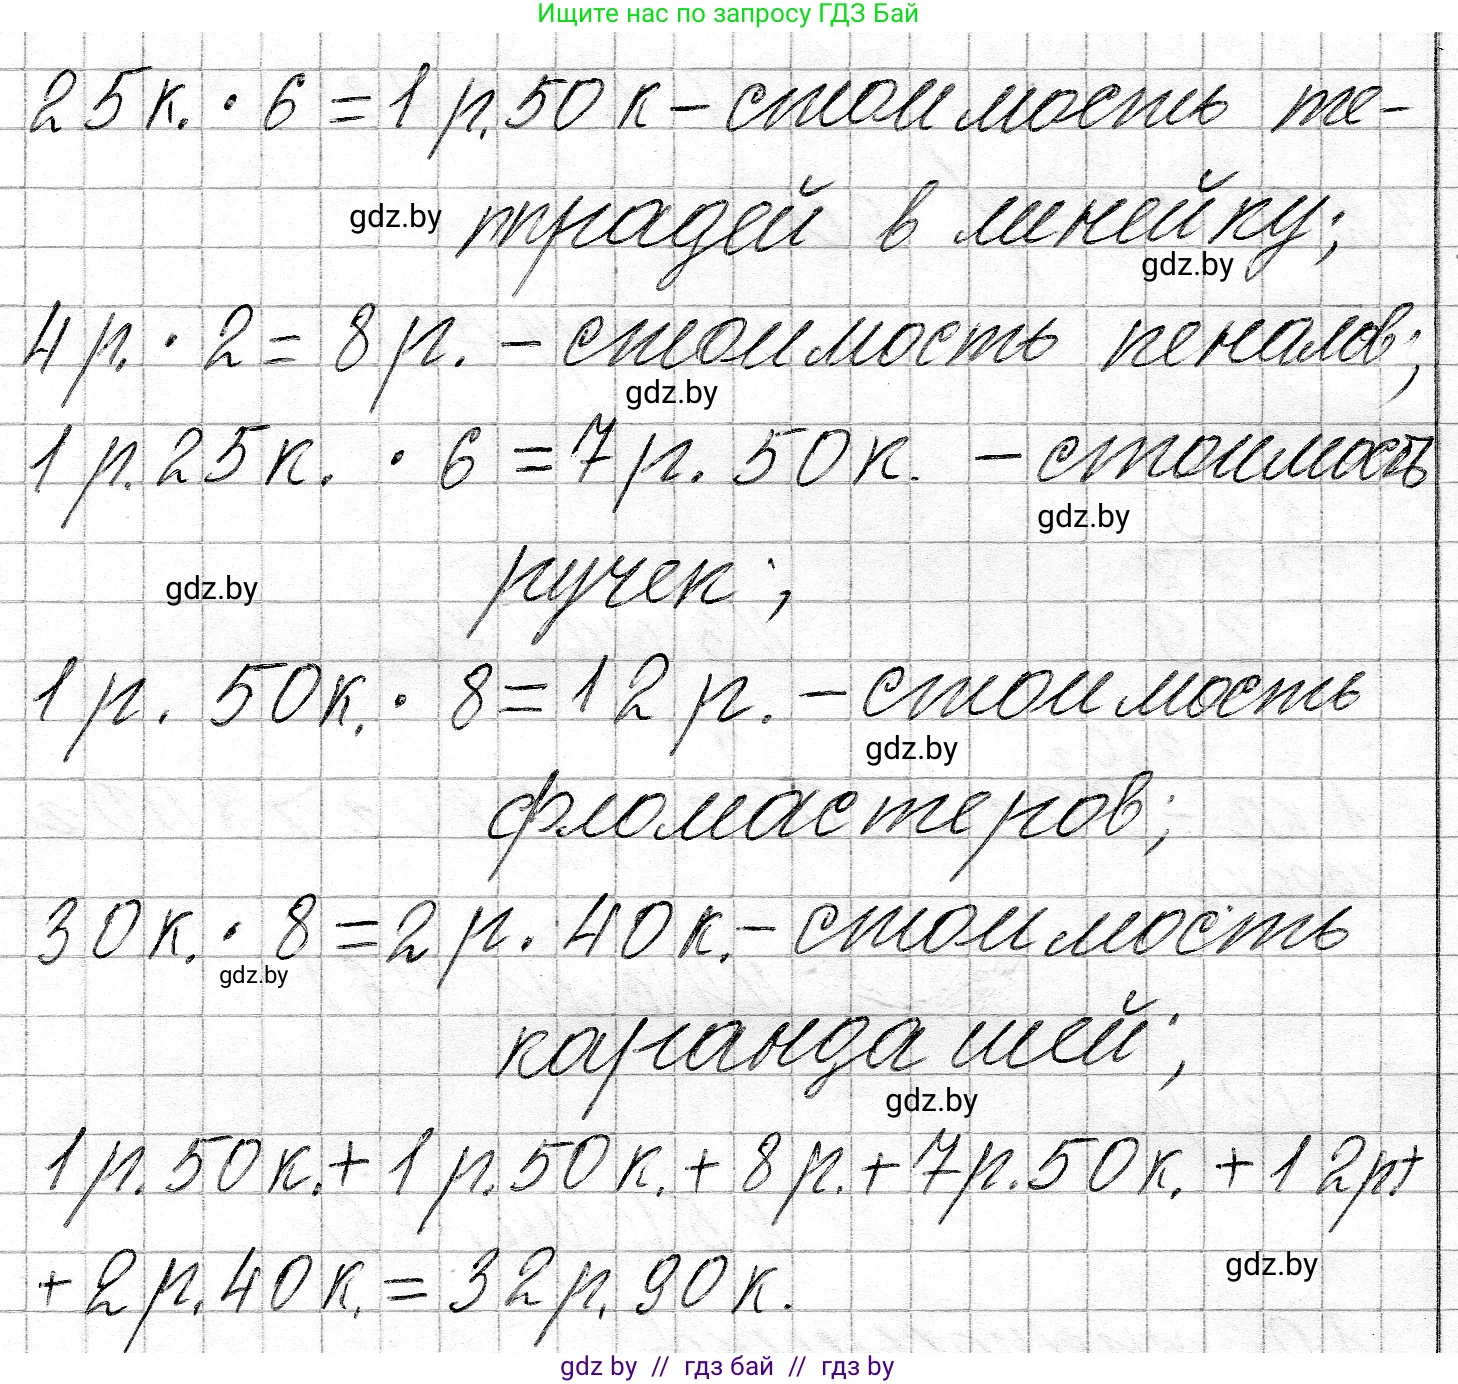 Ищите нас по запросу ГДЗ Бай
25к. · 6 = 1 р. 50 к – стоимость те-
gdz.by традей в линейку;
gdz.by
4 р. · 2 = 8 р. – стоимость пеналов;
gdz.by
1 р. 25 к. · 6 = 7 р. 50 к. – стоимость
gdz.by
gdz.by ручек;
1 р. 50к. · 8 = 12 р. – стоимость
gdz.by
фломастеров;
30 к. · 8 = 2 р. 40 к. – стоимость
gdz.by
карандашей;
gdz.by
1 р. 50 к. + 1 р. 50 к. + 8 р. + 7 р. 50 к. + 12 р. +
+ 2 р. 40 к. = 32 р. 90 к.
gdz.by
gdz by // гдз бай // гдз by